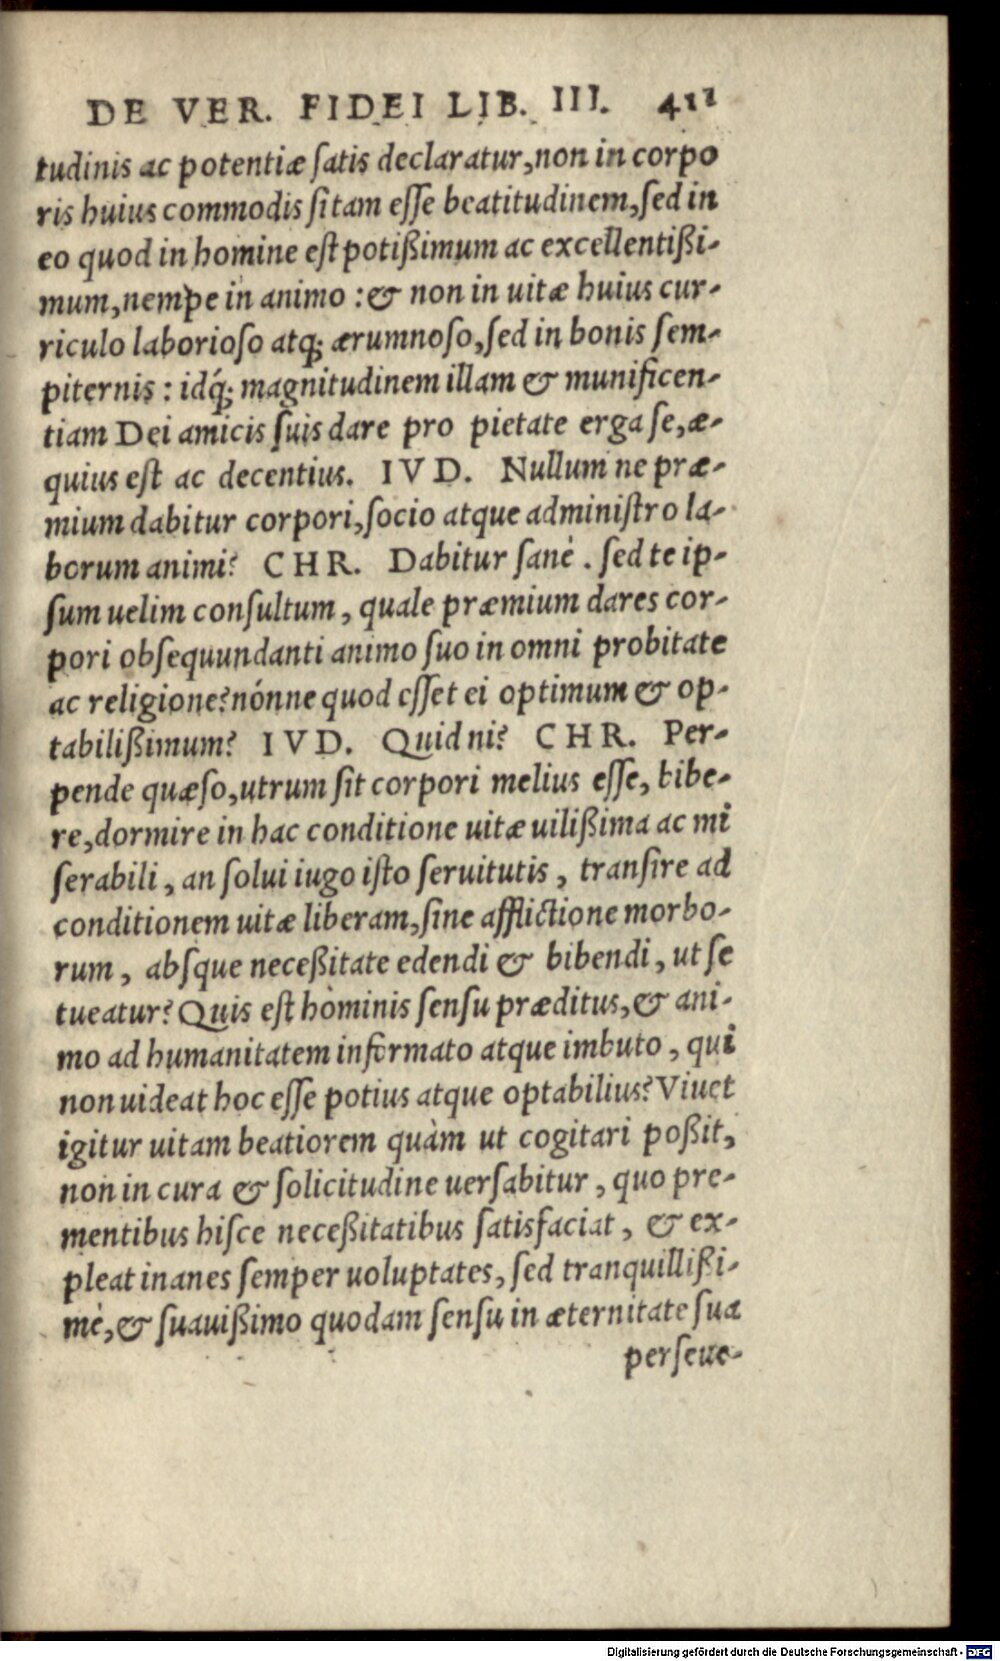 DE VER. FIDEI LIB. III. 411
tudinis ac potentiæ ſatis declaratur,non in corpo
ris huius commodis ſitam eſſe beatitudinem,ſed in
eo quod in homine eſt potißimum ac excellentißi-
mum,nempe in animo :& non in uitæ huius cur-
riculo laborioſo atq; ærumnoſo,ſed in bonis ſem-
piternis : idq́; magnitudinem illam & munificen-
tiam Dei amicis ſuis dare pro pietate erga ſe,æ-
quius eſt ac decentius. IVD. Nullum ne præ-
mium dabitur corpori,ſocio atque adminiſtro la-
borum animi? CHR. Dabitur ſanè . ſed te ip-
ſum uelim conſultum , quale præmium dares cor-
pori obſequundanti animo ſuo in omni probitate
ac religione?nónne quod eſſet ei optimum & op-
tabilißimum? IVD. Quid ni? CHR. Per-
pende quæſo,utrum ſit corpori melius eſſe, bibe-
re,dormire in hac conditione uitæ uilißima ac mi
ſerabili , an ſolui iugo iſto ſeruitutis , tranſire ad
conditionem uitæ liberam,ſine afflictione morbo-
rum , abſque neceßitate edendi & bibendi , ut ſe
tueatur? Quis eſt hominis ſenſu præditus,& ani-
mo ad humanitatem informato atque imbuto , qui
non uideat hoc eſſe potius atque optabilius? Viuet
igitur uitam beatiorem quàm ut cogitari poßit,
non in cura & ſolicitudine uerſabitur , quo pre-
mentibus hiſce neceßitatibus ſatisfaciat , & ex-
pleat inanes ſemper uoluptates, ſed tranquillißi-
mè,& ſuauißimo quodam ſenſu in æternitate ſua
perſeue-
Digitalisierung gefördert durch die Deutsche Forschungsgemeinschaft - DFG